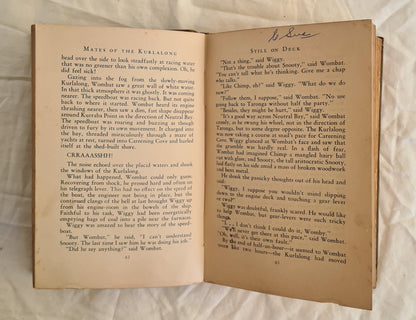 MATES OF THE KURLALONG
head over the side to look steadfastly at racing water
that was no greener than his own complexion. Oh, he
did feel sick!
Gazing into the fog from the slowly-moving
Kurlalong, Wombat saw a great wall of white water.
In that thick atmosphere it was ghostly. It was coming
nearer. The speedboat was coming back. But not quite
back to where it started. Wombat heard its engine
thrashing and spluttering as the speedboat swept around
Kurraba Point in the direction of Neutral Bay. The
speedboat was not being driven so much as being allowed
to drive forward by its own movement. It charged into
the bay, threaded miraculously through a maze of
yachts at rest, turned into Careening Cove and hurled
itself at the shed-built shore.
CRRAAASSHH!
The noise echoed over the placid waters and shook
the windows of the Kurlalong.
What had happened, Wombat could only guess.
Recovering from shock, he pressed hard and often on
his telegraph lever. This had no effect on the speed of
the boat, the engine not being in gear, but the
continued clangs of the bell at last brought Wiggy up
from his engine-room in the bowels of the ship.
Faithful to his task, Wiggy had been energetically
emptying bags of coal into a pile near the furnaces.
Wiggy was amazed to hear the story of the speed-
boat.
"But Wombat," he said, "I can't understand
Snooty. The last time I saw him he was doing his job."
"Did he say anything?" said Wombat.
STILL ON DECK
"Not a thing," said Wiggy.
"That's the trouble about Snooty," said Wombat.
"You can't tell what he's thinking. Give me a chap
who talks."
"Like Chimp, eh?" said Wiggy. "What do we do
now?"
"Pick them up, I suppose," said Wombat. "No use
going to Taronga without half the party."
"Besides, they might be hurt," said Wiggy.
"It's a good way across Neutral Bay," said Wombat
sadly, as he swung his wheel, not in the direction of
Taronga, but to some degree the opposite. The Kurlalong
was now taking a course at snail's pace for Careening
Cove. Wiggy glanced at Wombat's face and saw that
the gramble was hardly real. In a flash of fear,
Wombat had imagined Chimp a mangled hairy ball
of cut-off grin; and Snooty, the tall aristocratic Snooty,
laid flatly on his side amid a mass of broken woodwork
and bent metal.
He shook the panicky thoughts out of his head and
said:
"Wiggy, I suppose you wouldn't mind slipping
down to the engine deck and touching a gear lever
or two?"
Wiggy was doubtful, frankly scared. He would like
to help Wombat, but gear-levers were such tricky
things.
"I . . . I don't think I could do it, Womby."
"We'll never get there at this pace," said Wombat.
"Oh, well, it's their own fault."
By the end of half-an-hour—it seemed to Wombat
more like two hours—the Kurlalong had moved